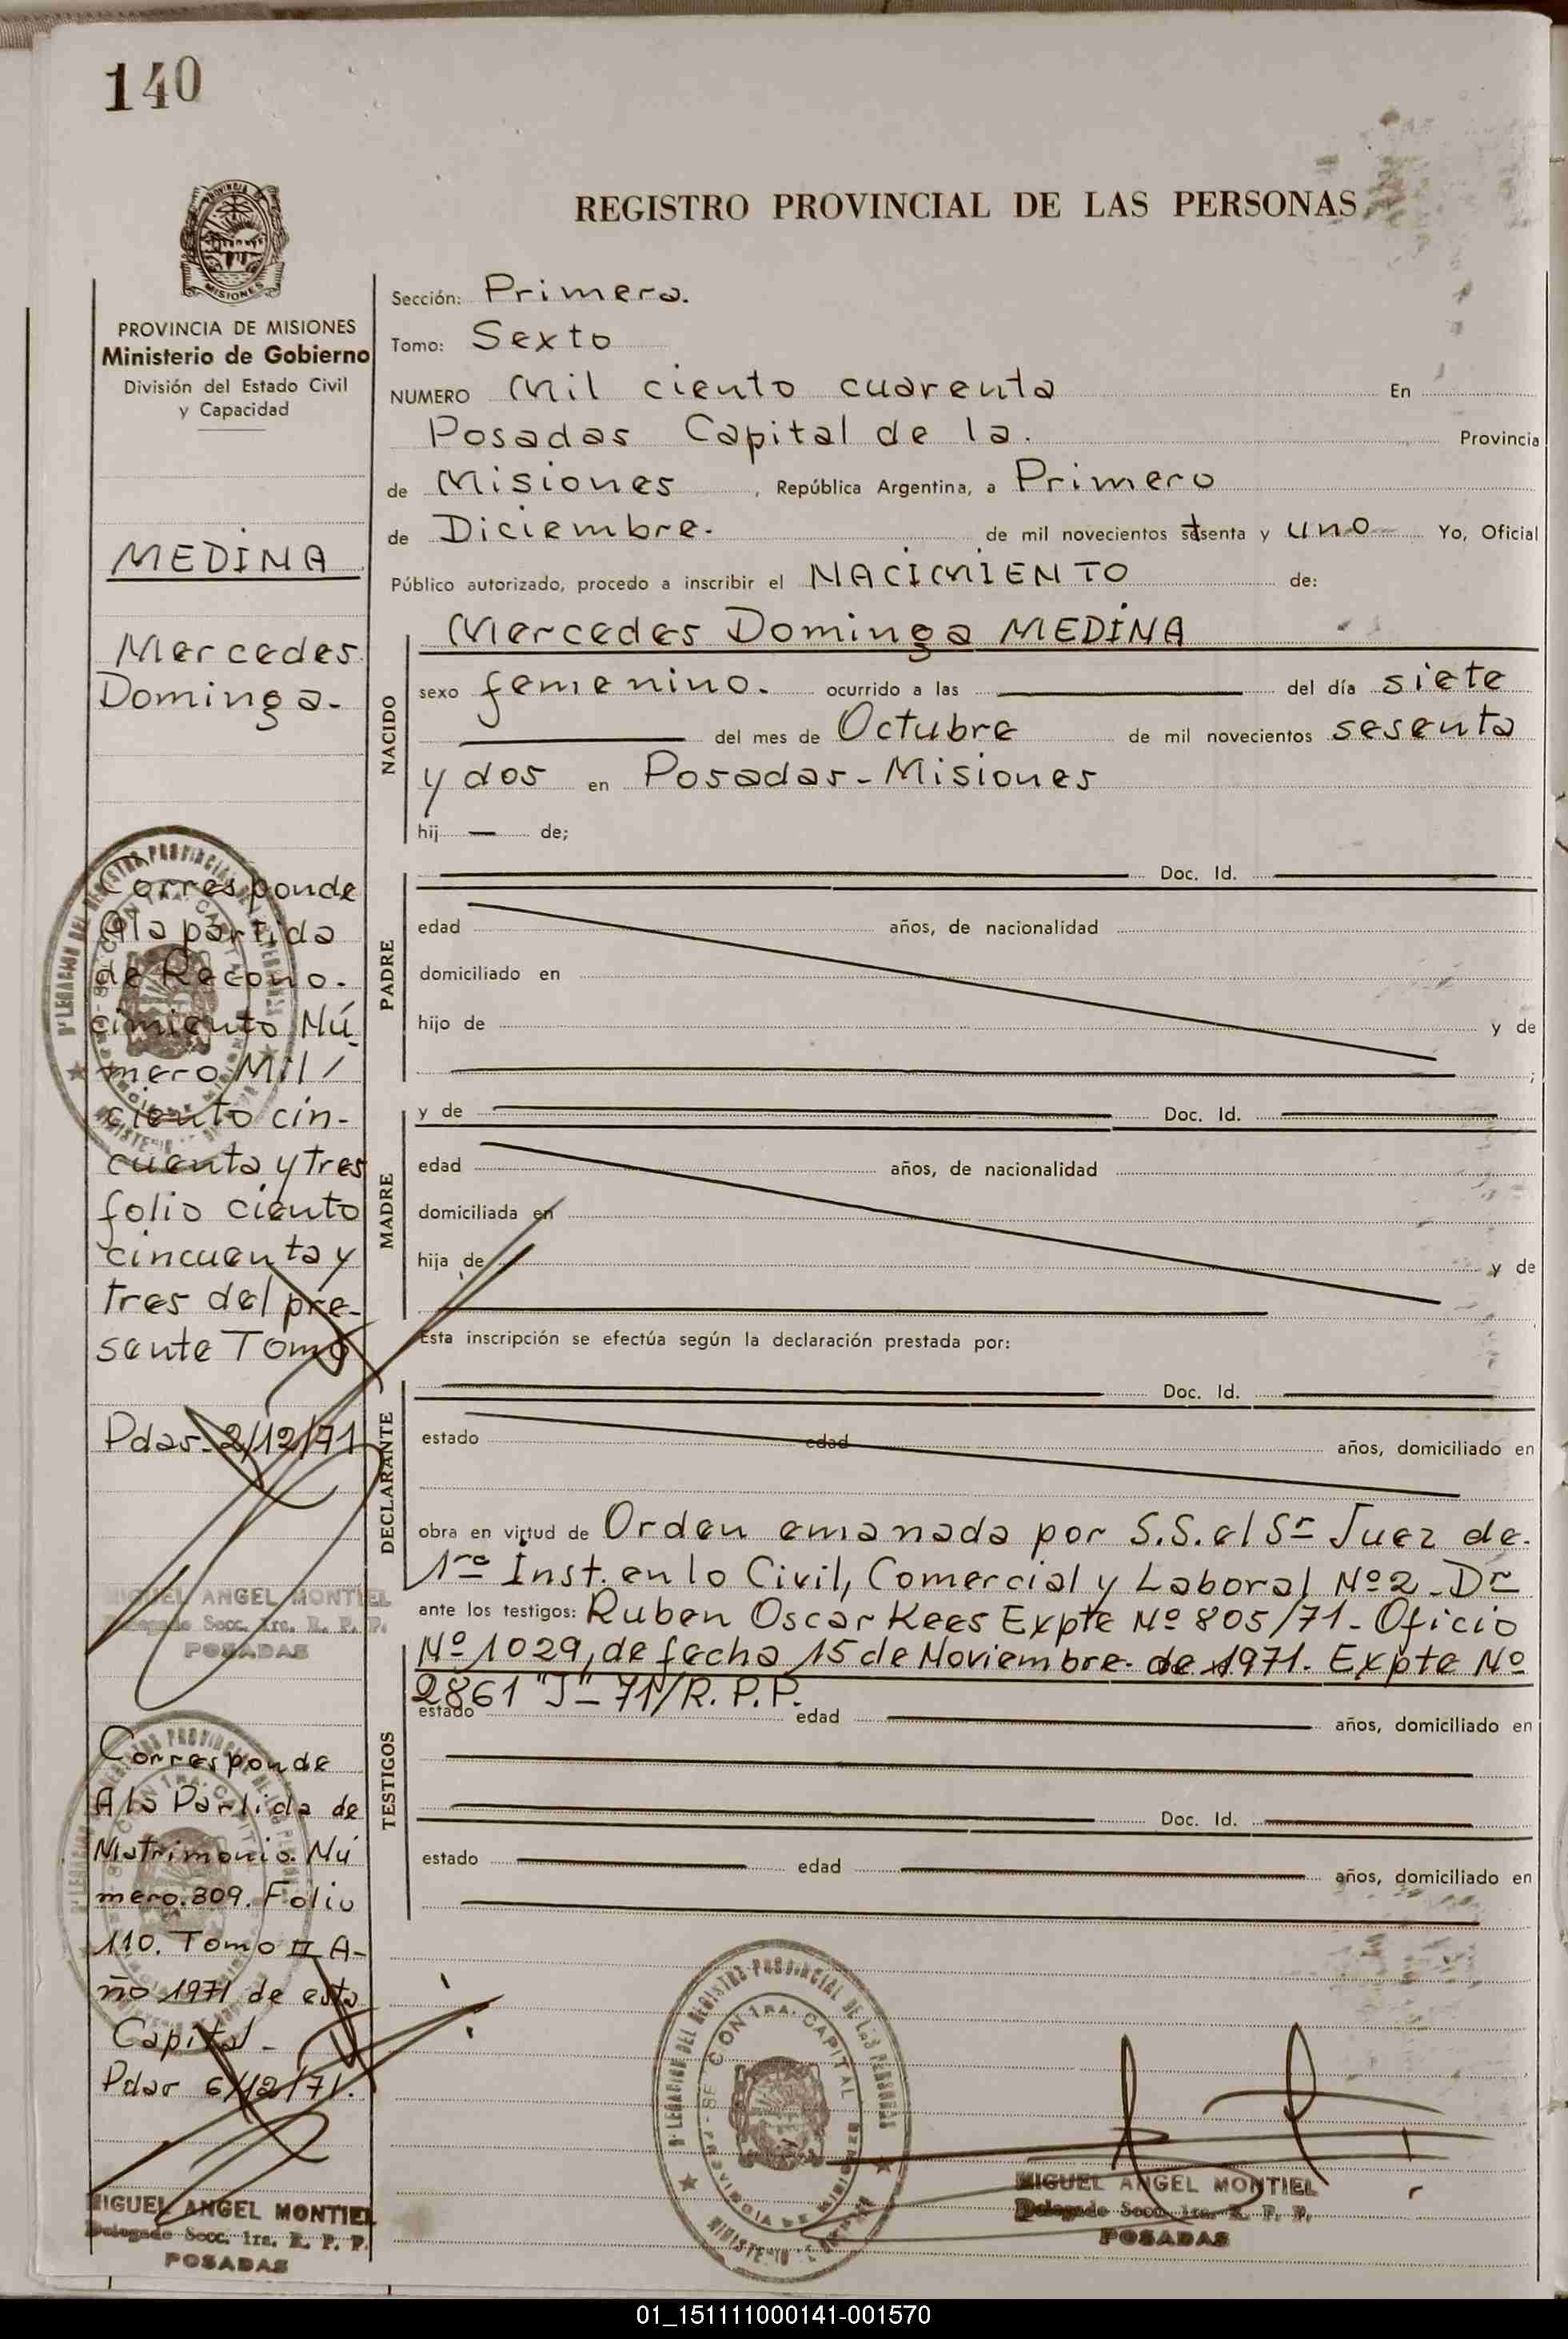 140
REGISTRO PROVINCIAL DE LAS PERSONAS
MISIONES
PROVINCIA DE MISIONES
Ministerio de Gobierno
División del Estado Civil
y Capacidad
MEDINA
Mercedes
Dominga-
Corresponde
A la partida
de Recono-
cimiento Nú-
mero Mil/
ciento cin-
cuenta y tres
folio ciento
cincuenta y
tres del pre-
sente Tomo
Pdas-2/12/71
MIGUEL ANGEL MONTIEL
Delegado Secc. 1ra. R. P. P.
POSADAS
Corresponde
A la Partida de
Matrimonio. Nú
mero.309. Folio
110. Tomo II A-
ño 1971 de esta
Capital-
Pdas 6/12/71.
MIGUEL ANGEL MONTIEL
Delegado Secc. 1ra. R. P. P.
POSADAS
Sección: Primera.
Tomo: Sexto
NUMERO Mil ciento cuarenta En
Posadas Capital de la. Provincia
de Misiones, República Argentina, a Primero
de Diciembre. de mil novecientos setenta y uno Yo, Oficial
Público autorizado, procedo a inscribir el NACIMIENTO de:
NACIDO
Mercedes Dominga MEDINA
sexo femenino. ocurrido a las del día siete
del mes de Octubre de mil novecientos sesenta
y dos en Posadas-Misiones
hij de;
PADRE
Doc. Id.
edad años, de nacionalidad
domiciliado en
hijo de y de
;
MADRE
y de Doc. Id.
edad años, de nacionalidad
domiciliada en
hija de y de
Esta inscripción se efectúa según la declaración prestada por:
DECLARANTE
Doc. Id.
estado edad años, domiciliado en
obra en virtud de Orden emanada por S.S. el Sr Juez de.
1ra Inst. en lo Civil, Comercial y Laboral Nº2-Dr
ante los testigos: Ruben Oscar Kees Expte Nº 805/71- Oficio
Nº 1029, de fecha 15 de Noviembre de 1971. Expte Nº
2861 "J"-71/R. P. P.
TESTIGOS
estado edad años, domiciliado en
Doc. Id.
estado edad años, domiciliado en
DELEGACION DEL REGISTRO PROVINCIAL DE LAS PERSONAS
SECCION 1RA. CAPITAL
PROVINCIA DE MISIONES
MIGUEL ANGEL MONTIEL
Delegado Secc. 1ra. R. P. P.
POSADAS
01_151111000141-001570